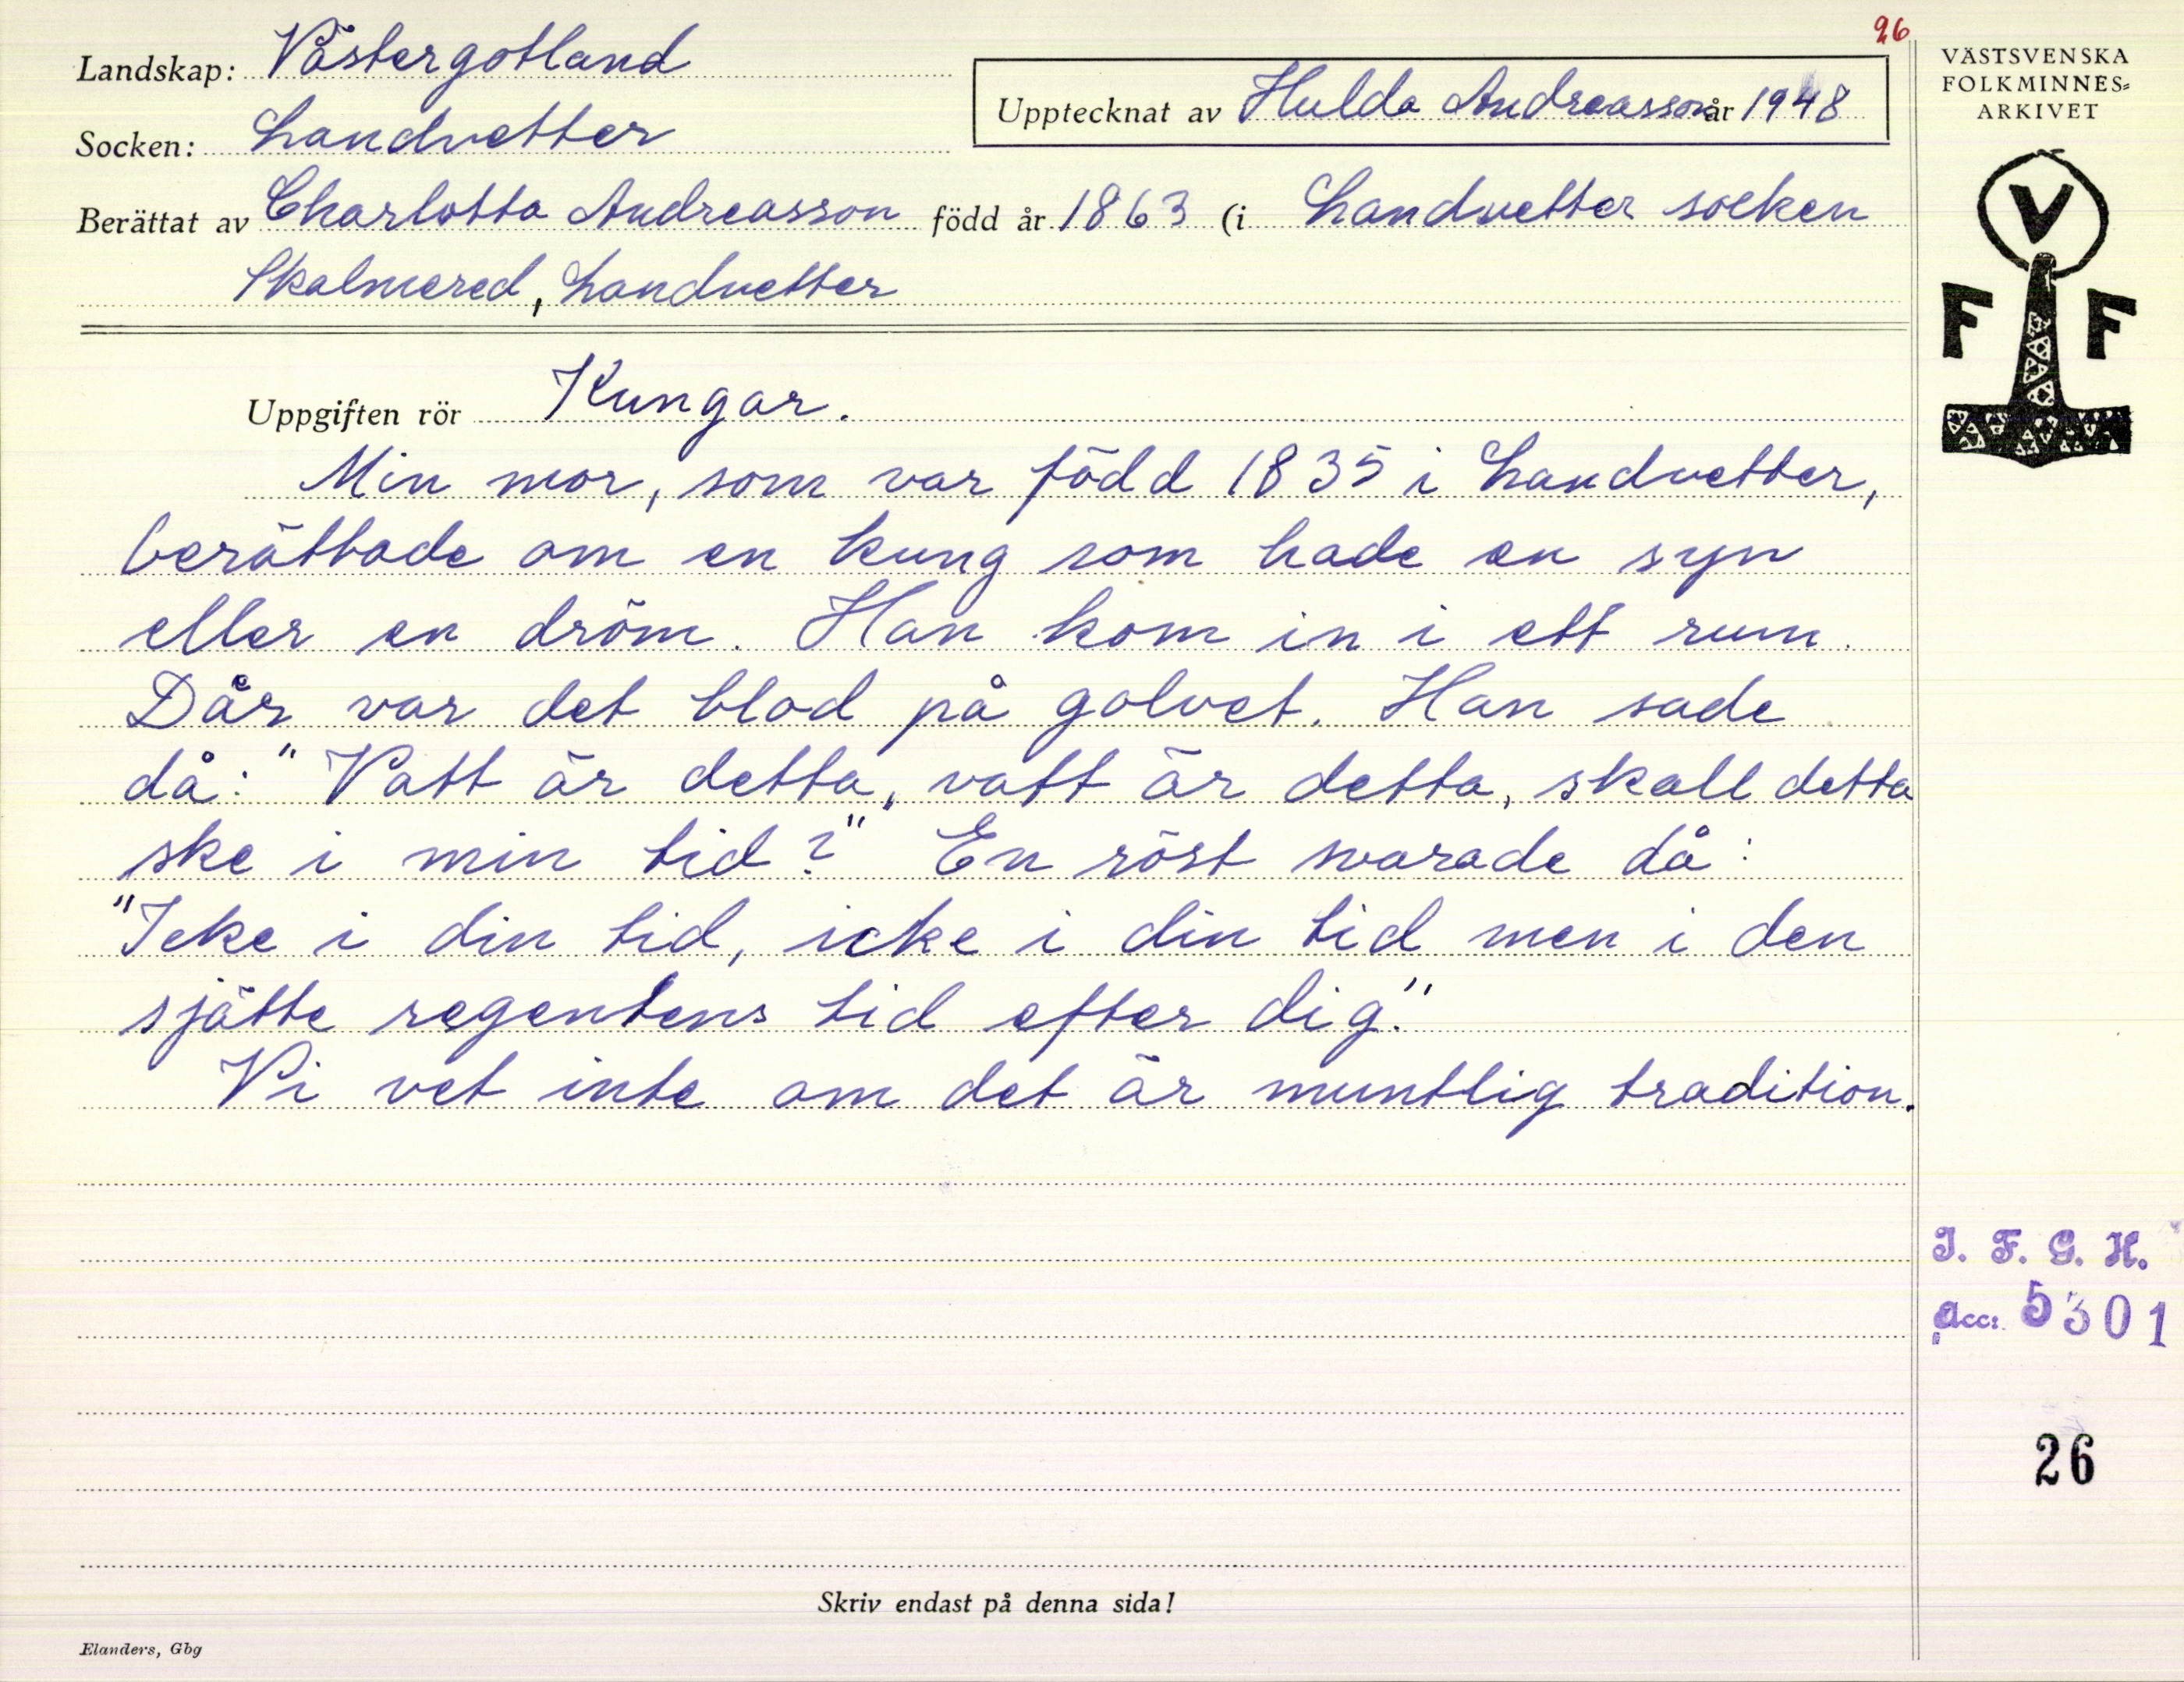 26
Landskap: Västergötland
Upptecknat av Hulda Andreasson år 1948
Socken: Landvetter
Berättat av Charlotta Andreasson född år 1863 (i Landvetter socken
Skalmered, Landvetter
Uppgiften rör Kungar.
Min mor, som var född 1835 i Landvetter,
berättade om en kung som hade en syn
eller en dröm. Han kom in i ett rum.
Där var det blod på golvet. Han sade
då: "Vatt är detta, vatt är detta, skall detta
ske i min tid?" En röst svarade då:
"Icke i din tid, icke i din tid men i den
sjätte regentens tid efter dig."
Vi vet inte om det är muntlig tradition.
Skriv endast på denna sida!
Elanders, Gbg
VÄSTSVENSKA
FOLKMINNES-
ARKIVET
V
F F
I. F. G. H.
Acc. 5301
26